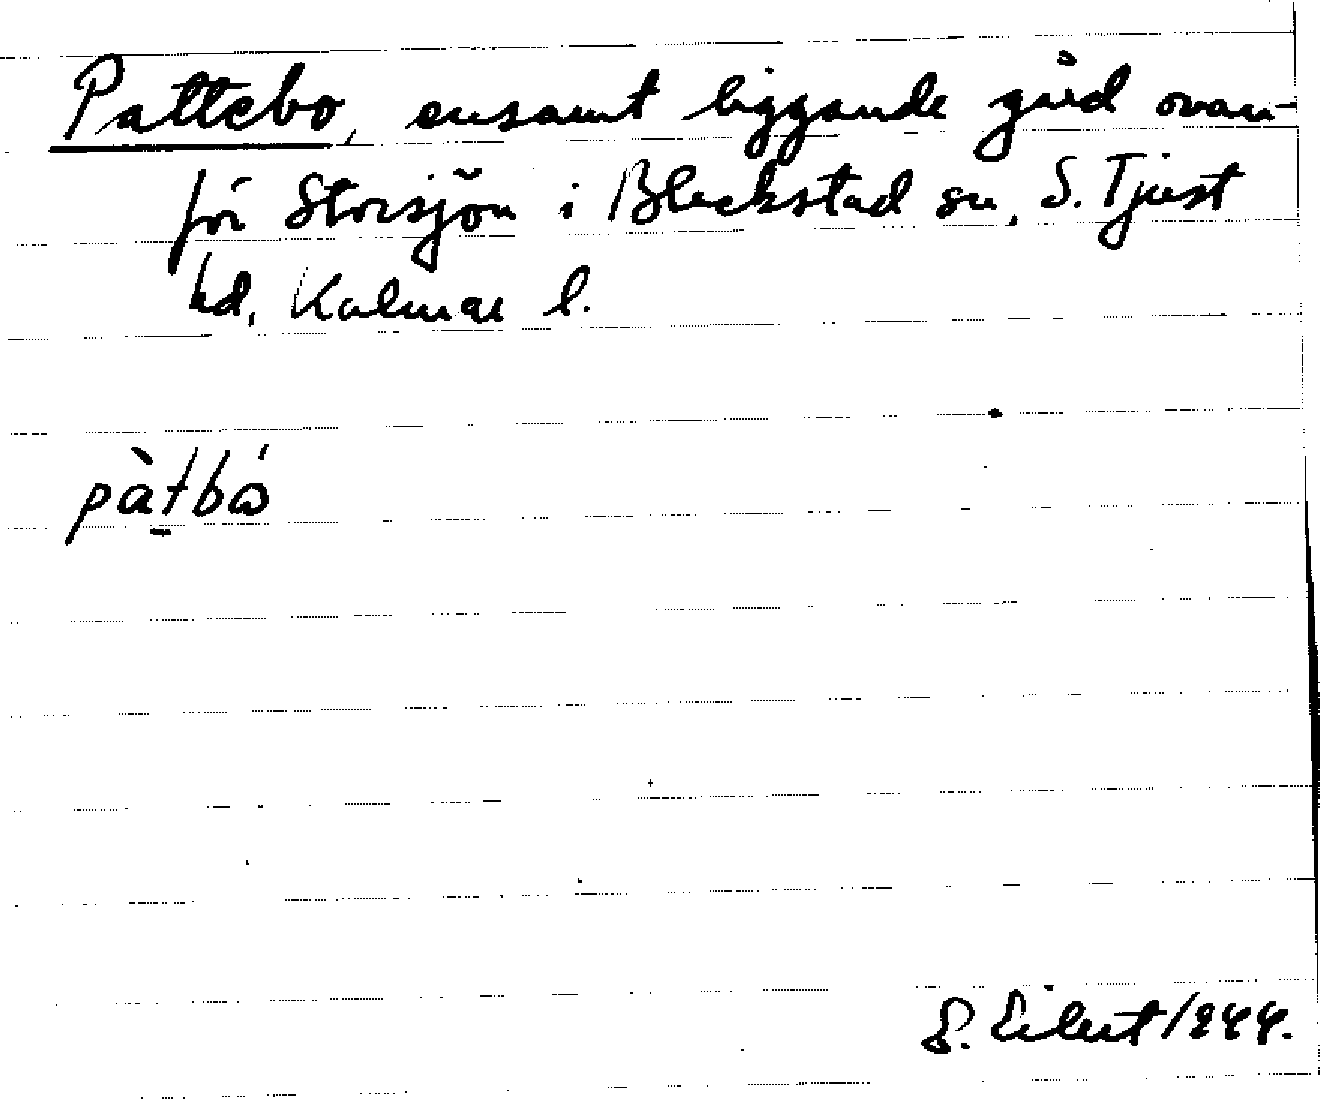 Pattebo, ensamt liggande gård ovan-
för Storsjön i Blackstad sn, S. Tjust
hd, Kalmar l.
pàt̠bó
S.